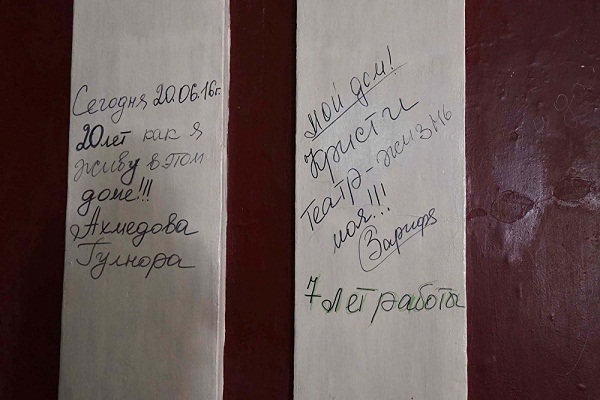 Сегодня 20.06.16г.
20 лет как я
живу в этом
доме!!!
Ахмедова
Гулнора
мой дом!
Кристи
Театр-жизнь
моя!!!
Зарифа
7 лет работа